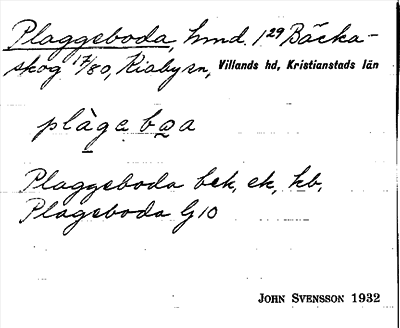 Plaggeboda, hmd. 1²⁹ Bäcka-
skog 17/80, Kiaby sn, Villands hd, Kristianstads län
plàgabọa
Plaggeboda bek, ek, kb,
Plageboda G10
JOHN SVENSSON 1932